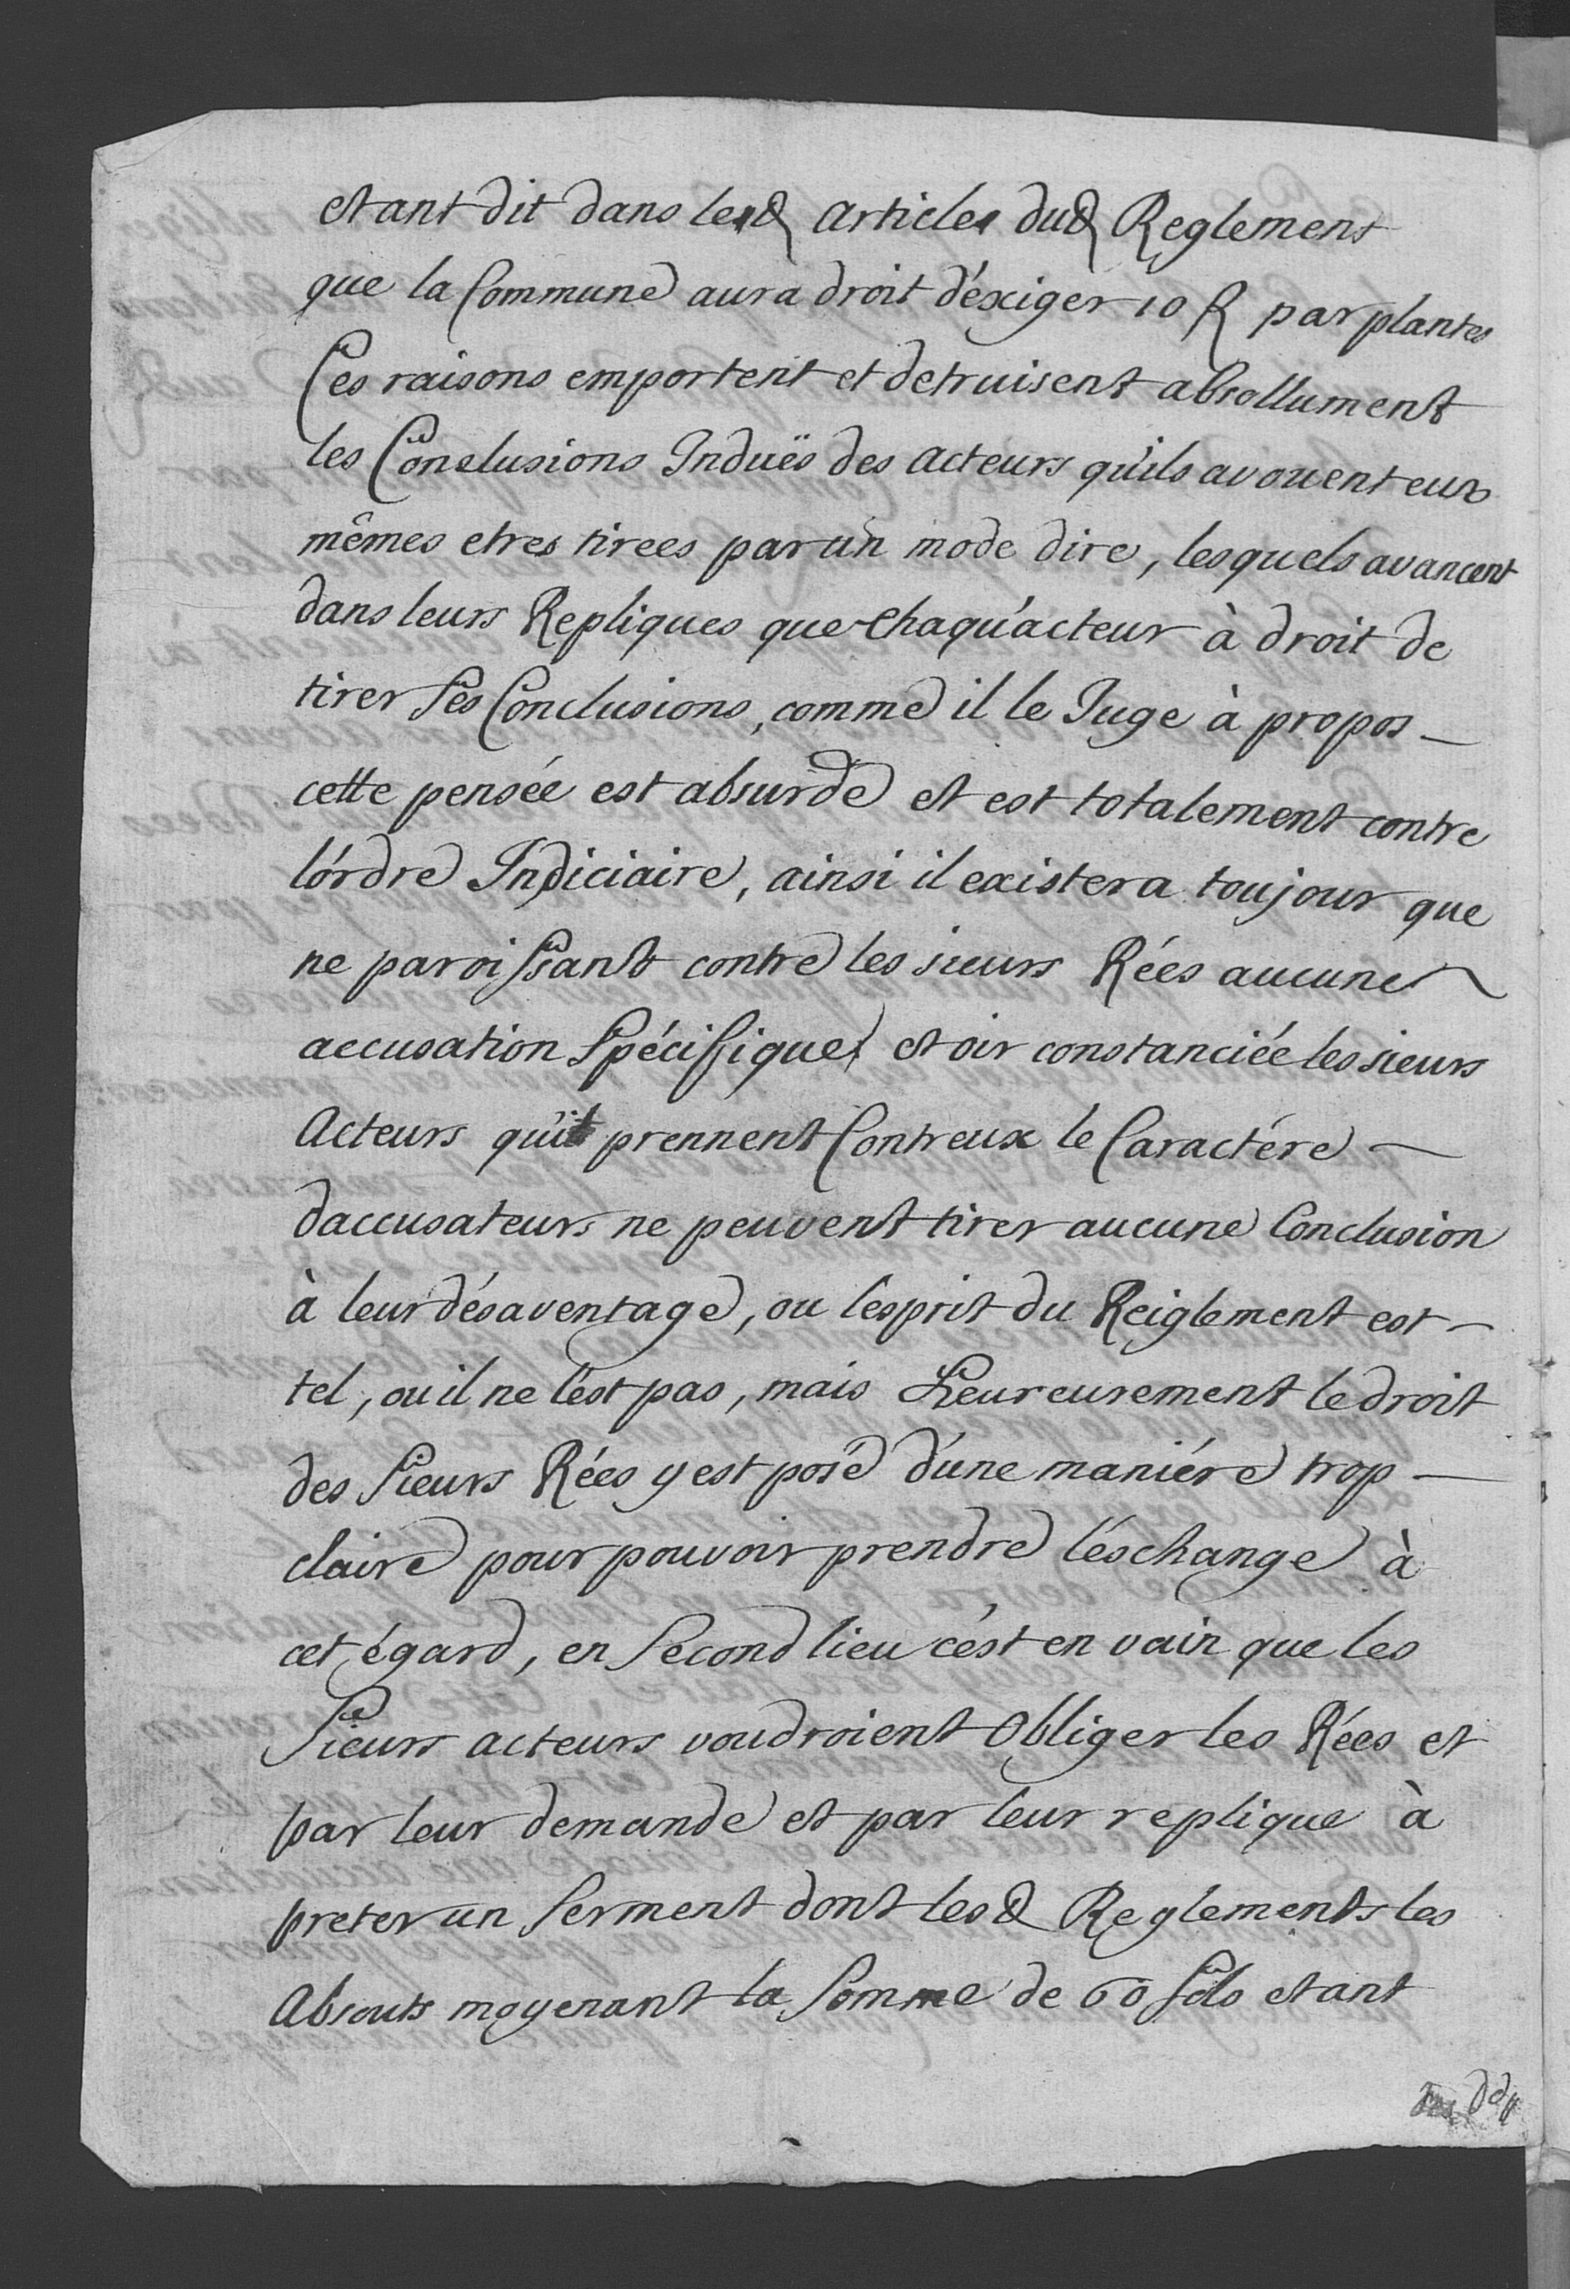 etant dit dans lesd articles dud Reglement
que la Commune aura droit d'éxiger 10 R par plantes
Ces raisons emportent et detruisent absollument
les Conclusions Induës des acteurs qu'ils avouent eux
mêmes etres tirees par un mode dire, lesquels avancent
dans leurs Repliques que Chaqu'acteur à droit de
tirer Ses Conclusions, comme il le Juge à propos _
cette pensée est absurde et est totalement contre
l'órdre Indiciaire, ainsi il existera toujour que
ne paroissant contre les sieurs Rées aucune
accusation Spécifique et cir constanciée les sieurs
Acteurs qui prennent Contreux le Caractére _
daccusateurs ne peuvent tirer aucune Conclusion
à leur désaventage, ou lésprit du Reiglement est _
tel, ou il ne lést pas, mais Heureusement le droit
des Sieurs Rées y est posé dúne maniére trop _
claire pour pouvoir prendre léschange à
cet égard, en Second lieu cést en vain que les
Sieurs acteurs voudroient Obliger les Rées et
par leur demande et par leur replique à
preter un Serment dont lesd Reglements les
Absouts moyenant la Somme de 60 Sols etant